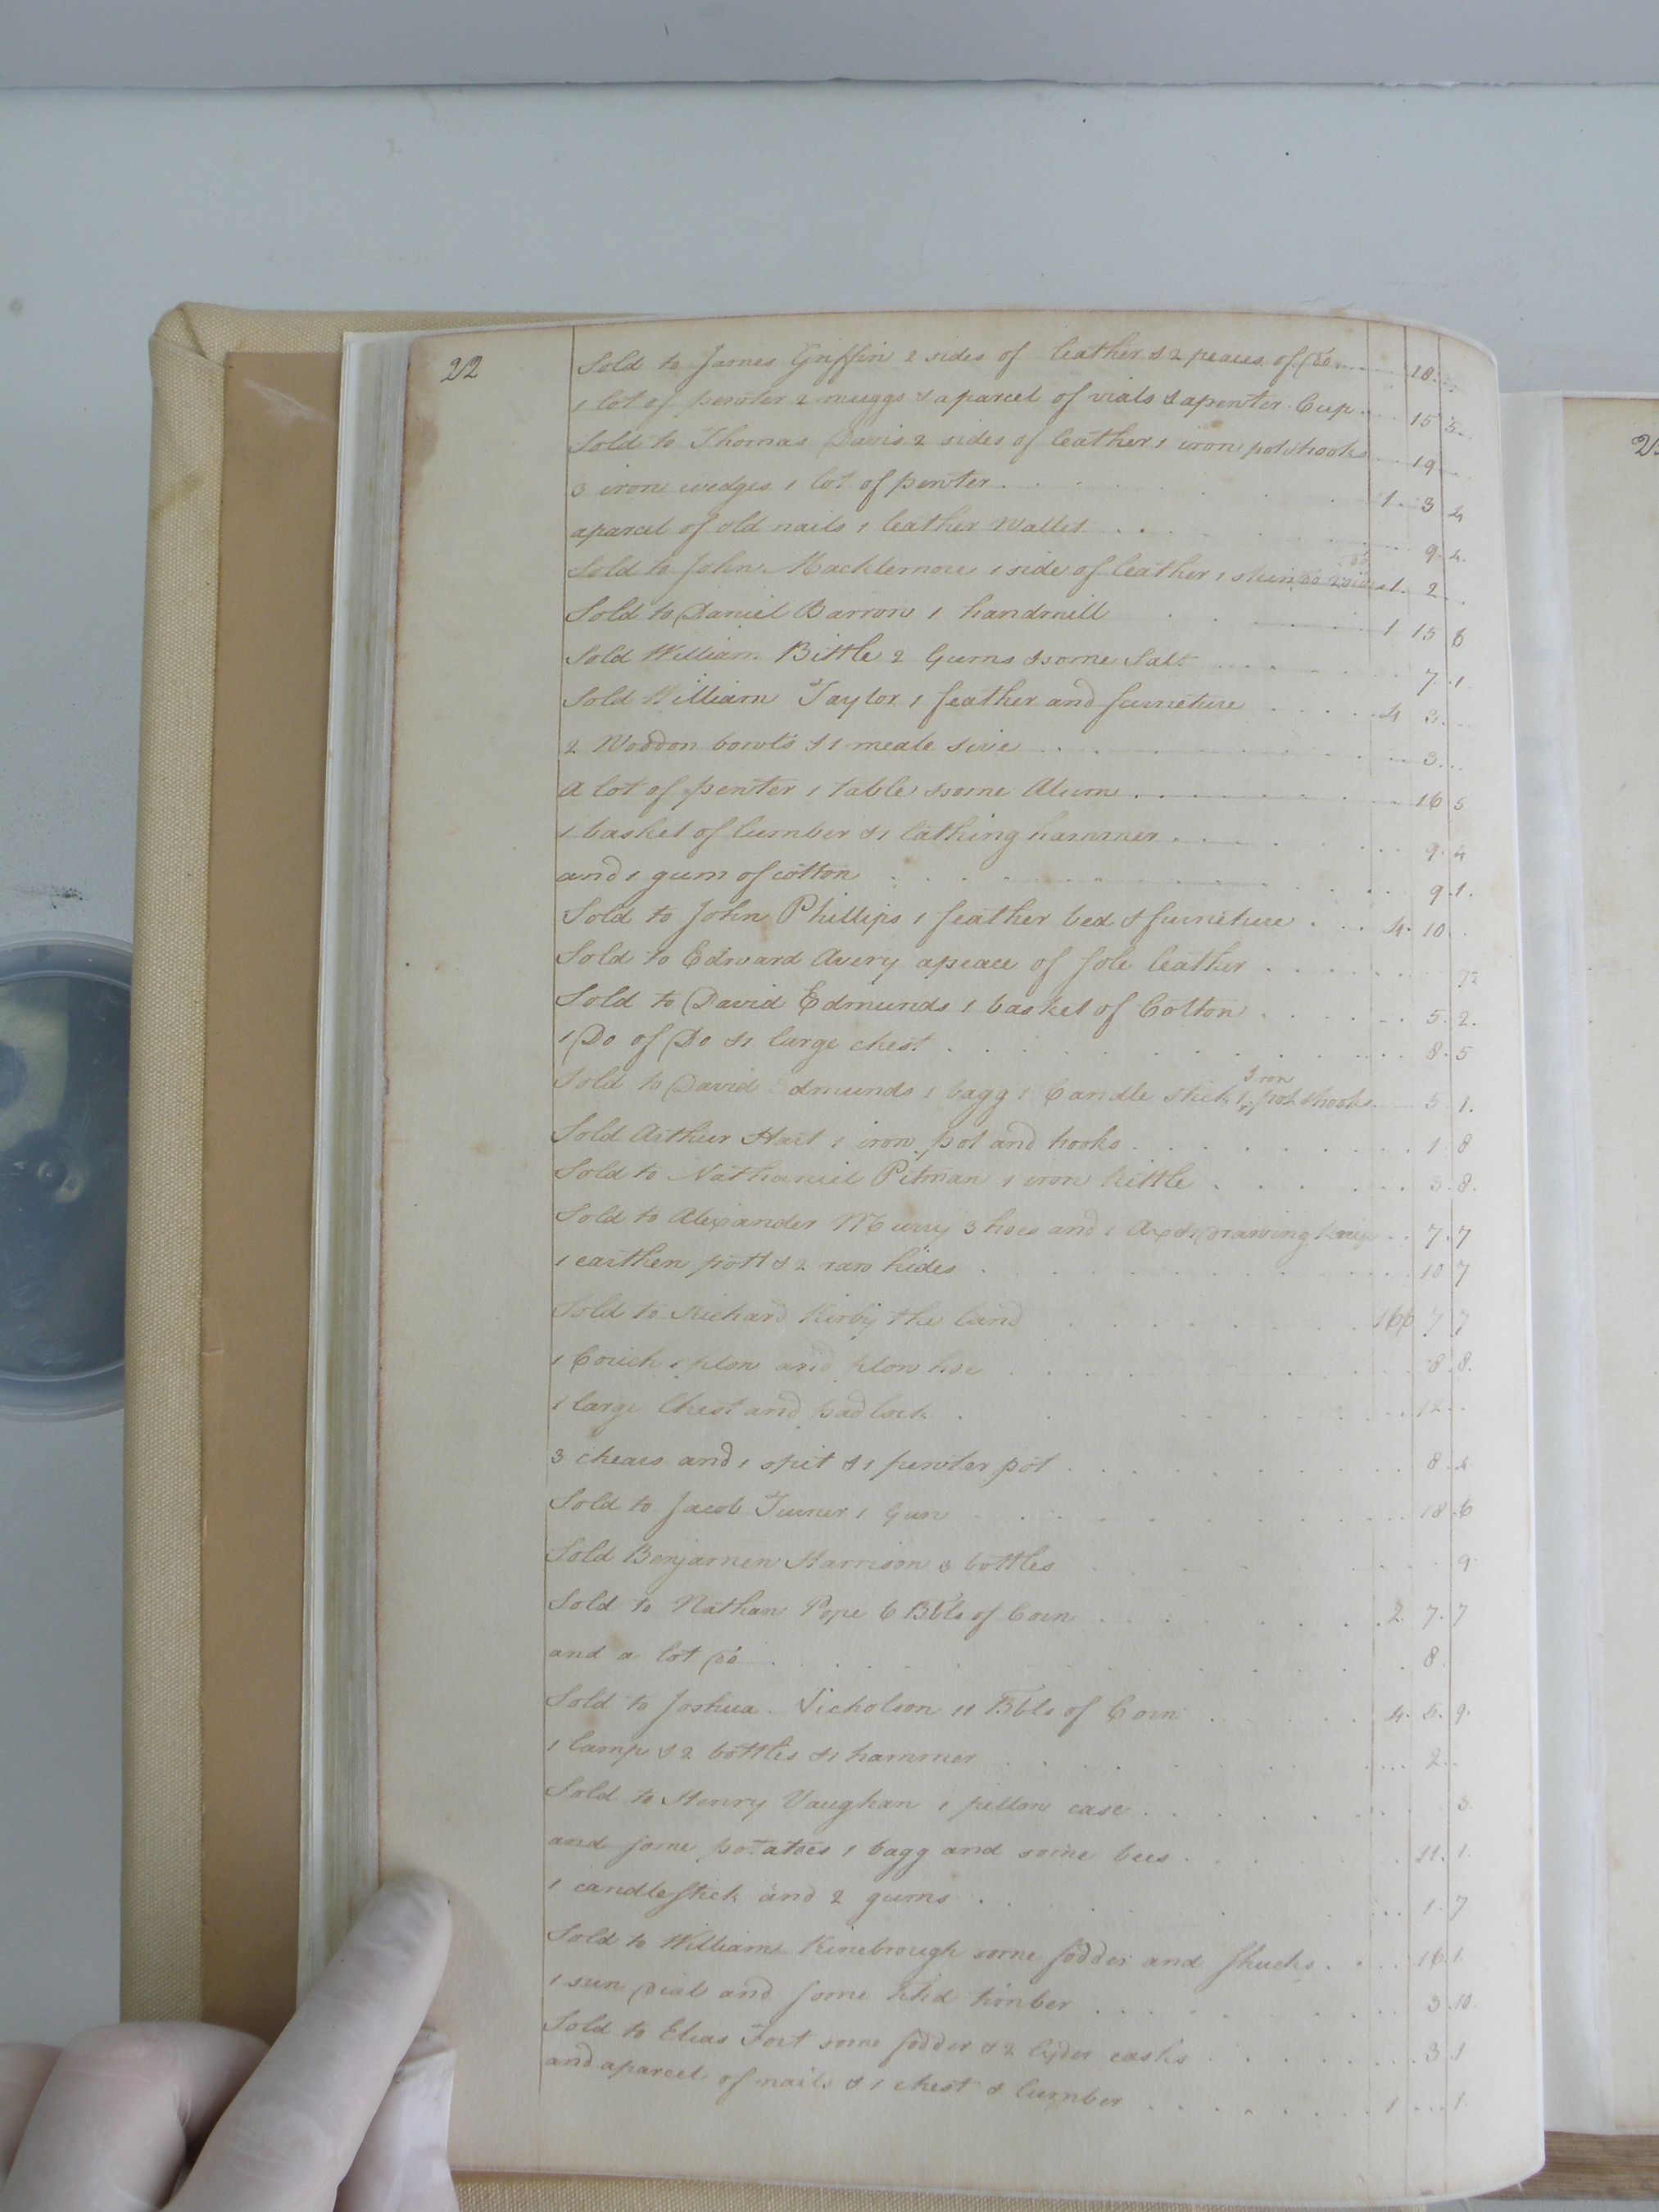 22
Sold to James Griffin 2 sides of leather & 2 peaces of Do 18
1 lot of pewter 2 muggs & a parcel of vials & a pewter Cup 15 5
Sold to Thomas Davis 2 sides of leather 1 iron pot & hooks 19
3 iron wedges 1 lot of pewter 1 3 4
aparcel of old nails 1 leather Wallet 9 4
Sold to John Macklemore 1 side of leather 1 skin 1 2
Sold to Daniel Barron 1 handmill 1 15 6
Sold William Bittle 2 Gums & some Salt 7 1
Sold William Taylor 1 feather and furneture 4 3
2 Woddon bowls & 1 meale sive 3
a lot of pewter 1 table & some Alum 16 5
1 basket of lumber & 1 lathing hammer 9 4
and 1 gum of cotton 9 1
Sold to John Phillips 1 feather bed & furneture 4 10
Sold to Edward Avery apeace of sole leather
Sold to David Edmunds 1 basket of Cotton 5 2
1 Do of Do & 1 large chest 8 5
Sold to David Edmunds 1 bagg 1 Candle stick 1 Iron pot & hooks 5 1
Sold Arthur Hart 1 iron pot and hooks 1 8
Sold to Nathaniel Pitman 1 iron kittle 3 8
Sold to Alexander Murry 3 hoes and 1 Ax & 1 Drawing knife 7 7
1 earthen pott & 2 raw hides 10 7
Sold to Richard Kirby the land 166 7 7
1 Couch 1 plow and plow hoe 8 8
1 large Chest and padlock 12
3 chears and 1 spit & 1 pewter pot 8 4
Sold to Jacob Turner 1 Gun 18 6
Sold Benjamen Harrison 3 bottles 9
Sold to Nathan Pope 6 Bbls of Corn 2 7 7
and a lot Do 8
Sold to Joshua Nicholson 11 Bbls of Corn 4 5 9
1 lamp & 2 bottles & 1 hammer 2
Sold to Henry Vaughan 1 pillow case 3
and some potatoes 1 bagg and some bees 11 1
1 candlestick and 2 gums 1 7
Sold to William Kinebrough some fodder and shucks 16 1
1 sun Dial and some timber 3 10
Sold to Elias Fort some fodder & 2 Cyder casks 3 1
and aparcel of nails & 1 chest & lumber 1 1